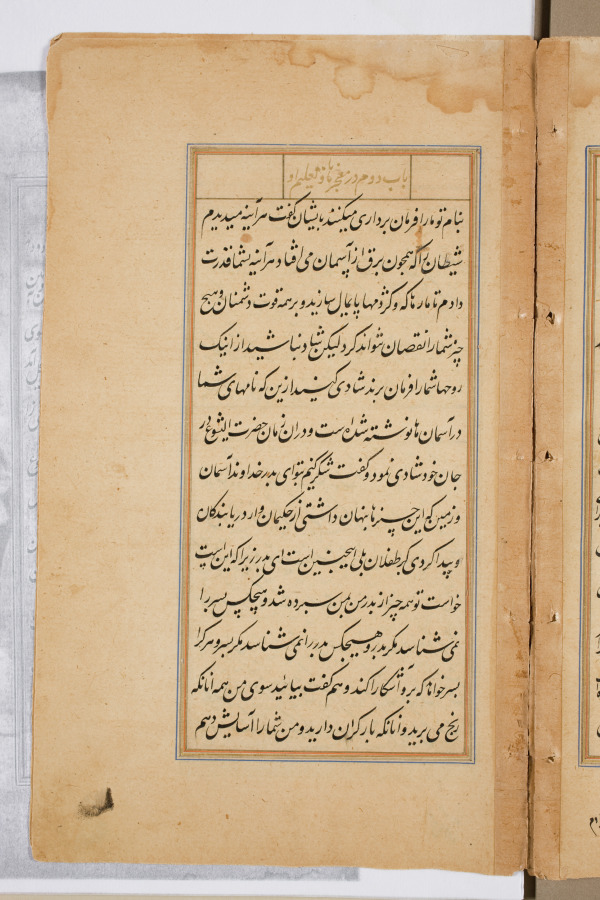 باب دوم در معجزها و تعلیم او
بنام تو ما را فرمان برداری میکنند بایشان گفت هرآینه میدیدم
شیطان را که همچون برق از آسمان می افتاد هرآینه بشما قدرت
دادم تا مارها که و کژدمها پایمال سازید و بر همه قوت دشمنان و هیچ
چیز شما را نقصان نتواند کرد لیکن شاد نباشید از اینک
روحها شما را فرمان برند شادی کنید ازین که نامهای شما
در آسمان ها نوشته شده است و در ان زمان حضرت ایشوع در
جان خود شادی نمود و گفت شکر کنم بتو ای پدر خداوند آسمان
و زمین که این چیزها پنهان داشتی از حکیمان و از دریابندگان
و پیدا کردی که طفلان بلی همچنین است ای پدر زیرا که این است
خواست تو همه چیز از پدر من بمن سپرده شد و هیچکس پسر را
نمی شناسد مکر پدر و هیچکس پدر را نمی شناسد مکر پسر و هر کرا
پسر خواهد که برو آشکارا کند و هم گفت بیائید سوی من همه انانکه
رنج می برید و انانکه بار کران دارید و من شما را آسایش دهم